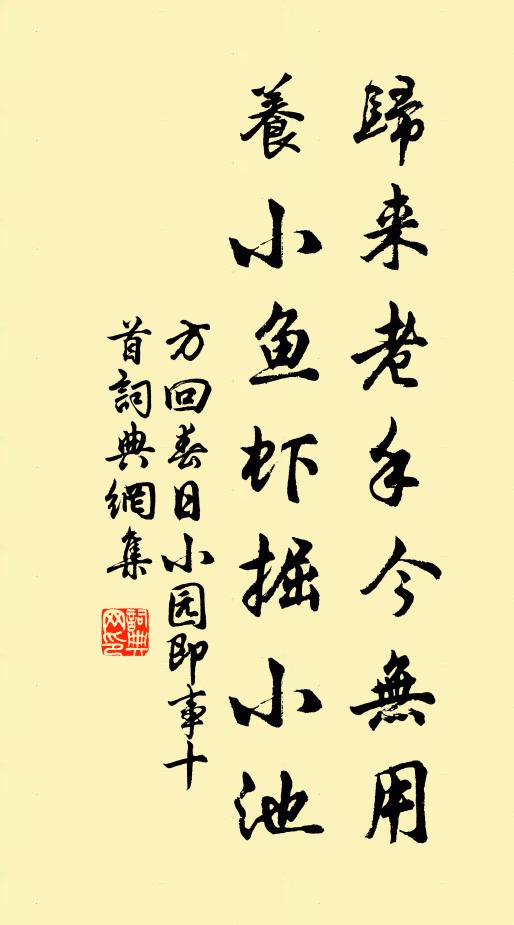 歸来老手今無用
養小鱼虾掘小池
方回春日小园即事十
首詞典網集
詞典網印